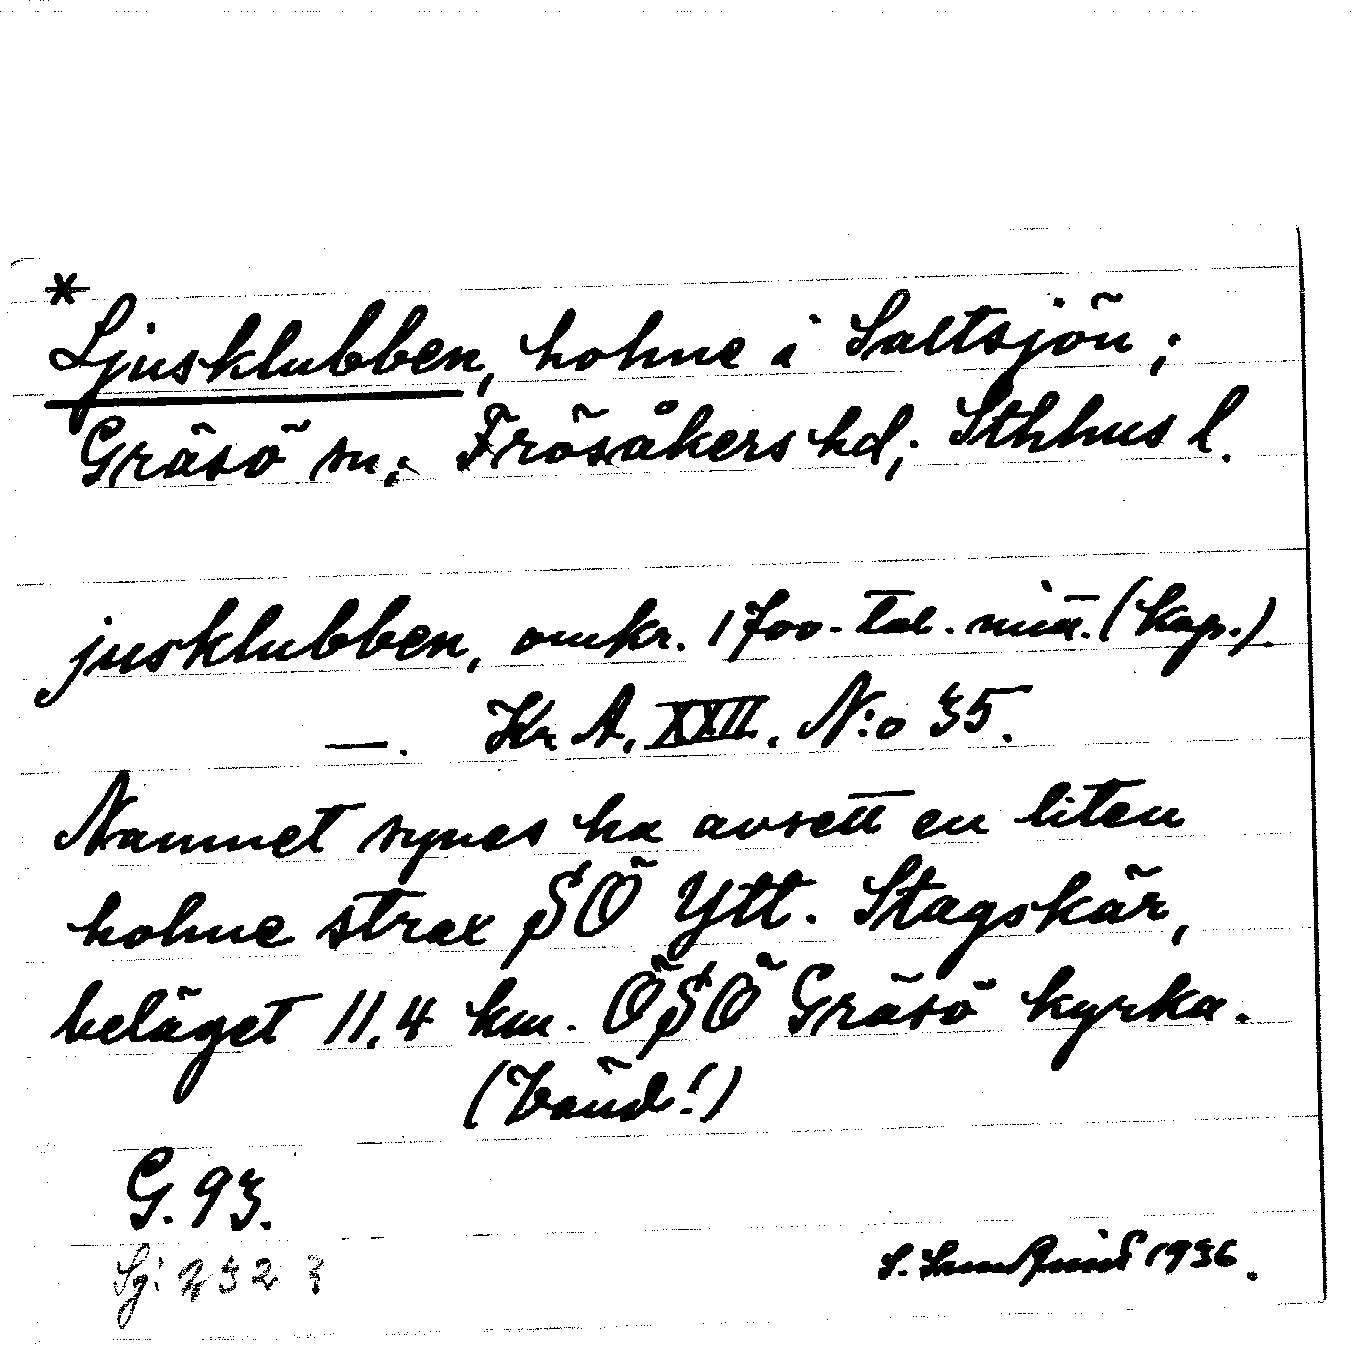 *
Ljusklubben, holme i Saltsjön;
Gräsö sn; Frösåkers hd; Sthlms l.
jusklubben, omkr. 1700-tal. mitt. (kop.).
—. Kr. A. XXII. N:o 35.
Namnet synes ha avsett en liten
holme strax SÖ Ytt. Stagskär,
beläget 11,4 km. ÖSÖ Gräsö kyrka.
G. 93.
1936.